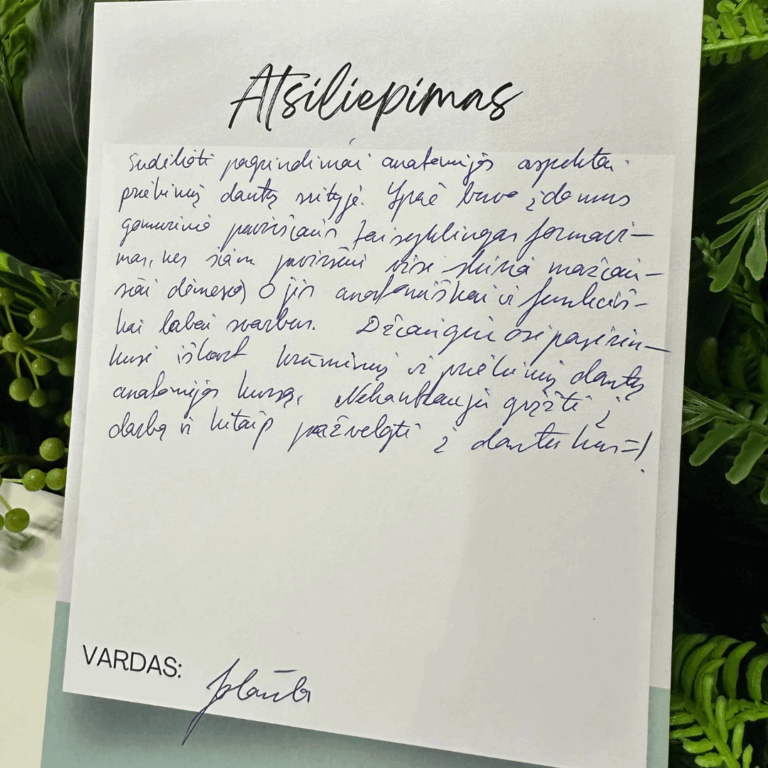 Atsiliepimas
Sudėlioti pagrindiniai anatomijos aspektai
priekinių dantų srityje. Ypač buvo įdomus
gomurinio paviršiaus taisyklingas formavi-
mas, nes šiam paviršiui visi skiria mažiau-
siai dėmesio, o jis anatomiškai ir funkciš-
kai labai svarbus. Džiaugiuosi pasirin-
kusi iškart krūminių ir priekinių dantų
anatomijos kursą. Nekantrauju grįžti į
darbą ir kitaip pažvelgti į dantukus =)!
VARDAS: Jolanta